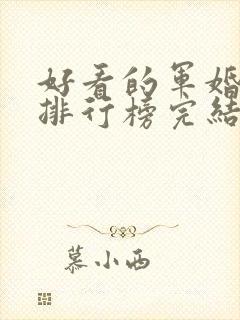 好看的军婚
排行榜完结
慕小西